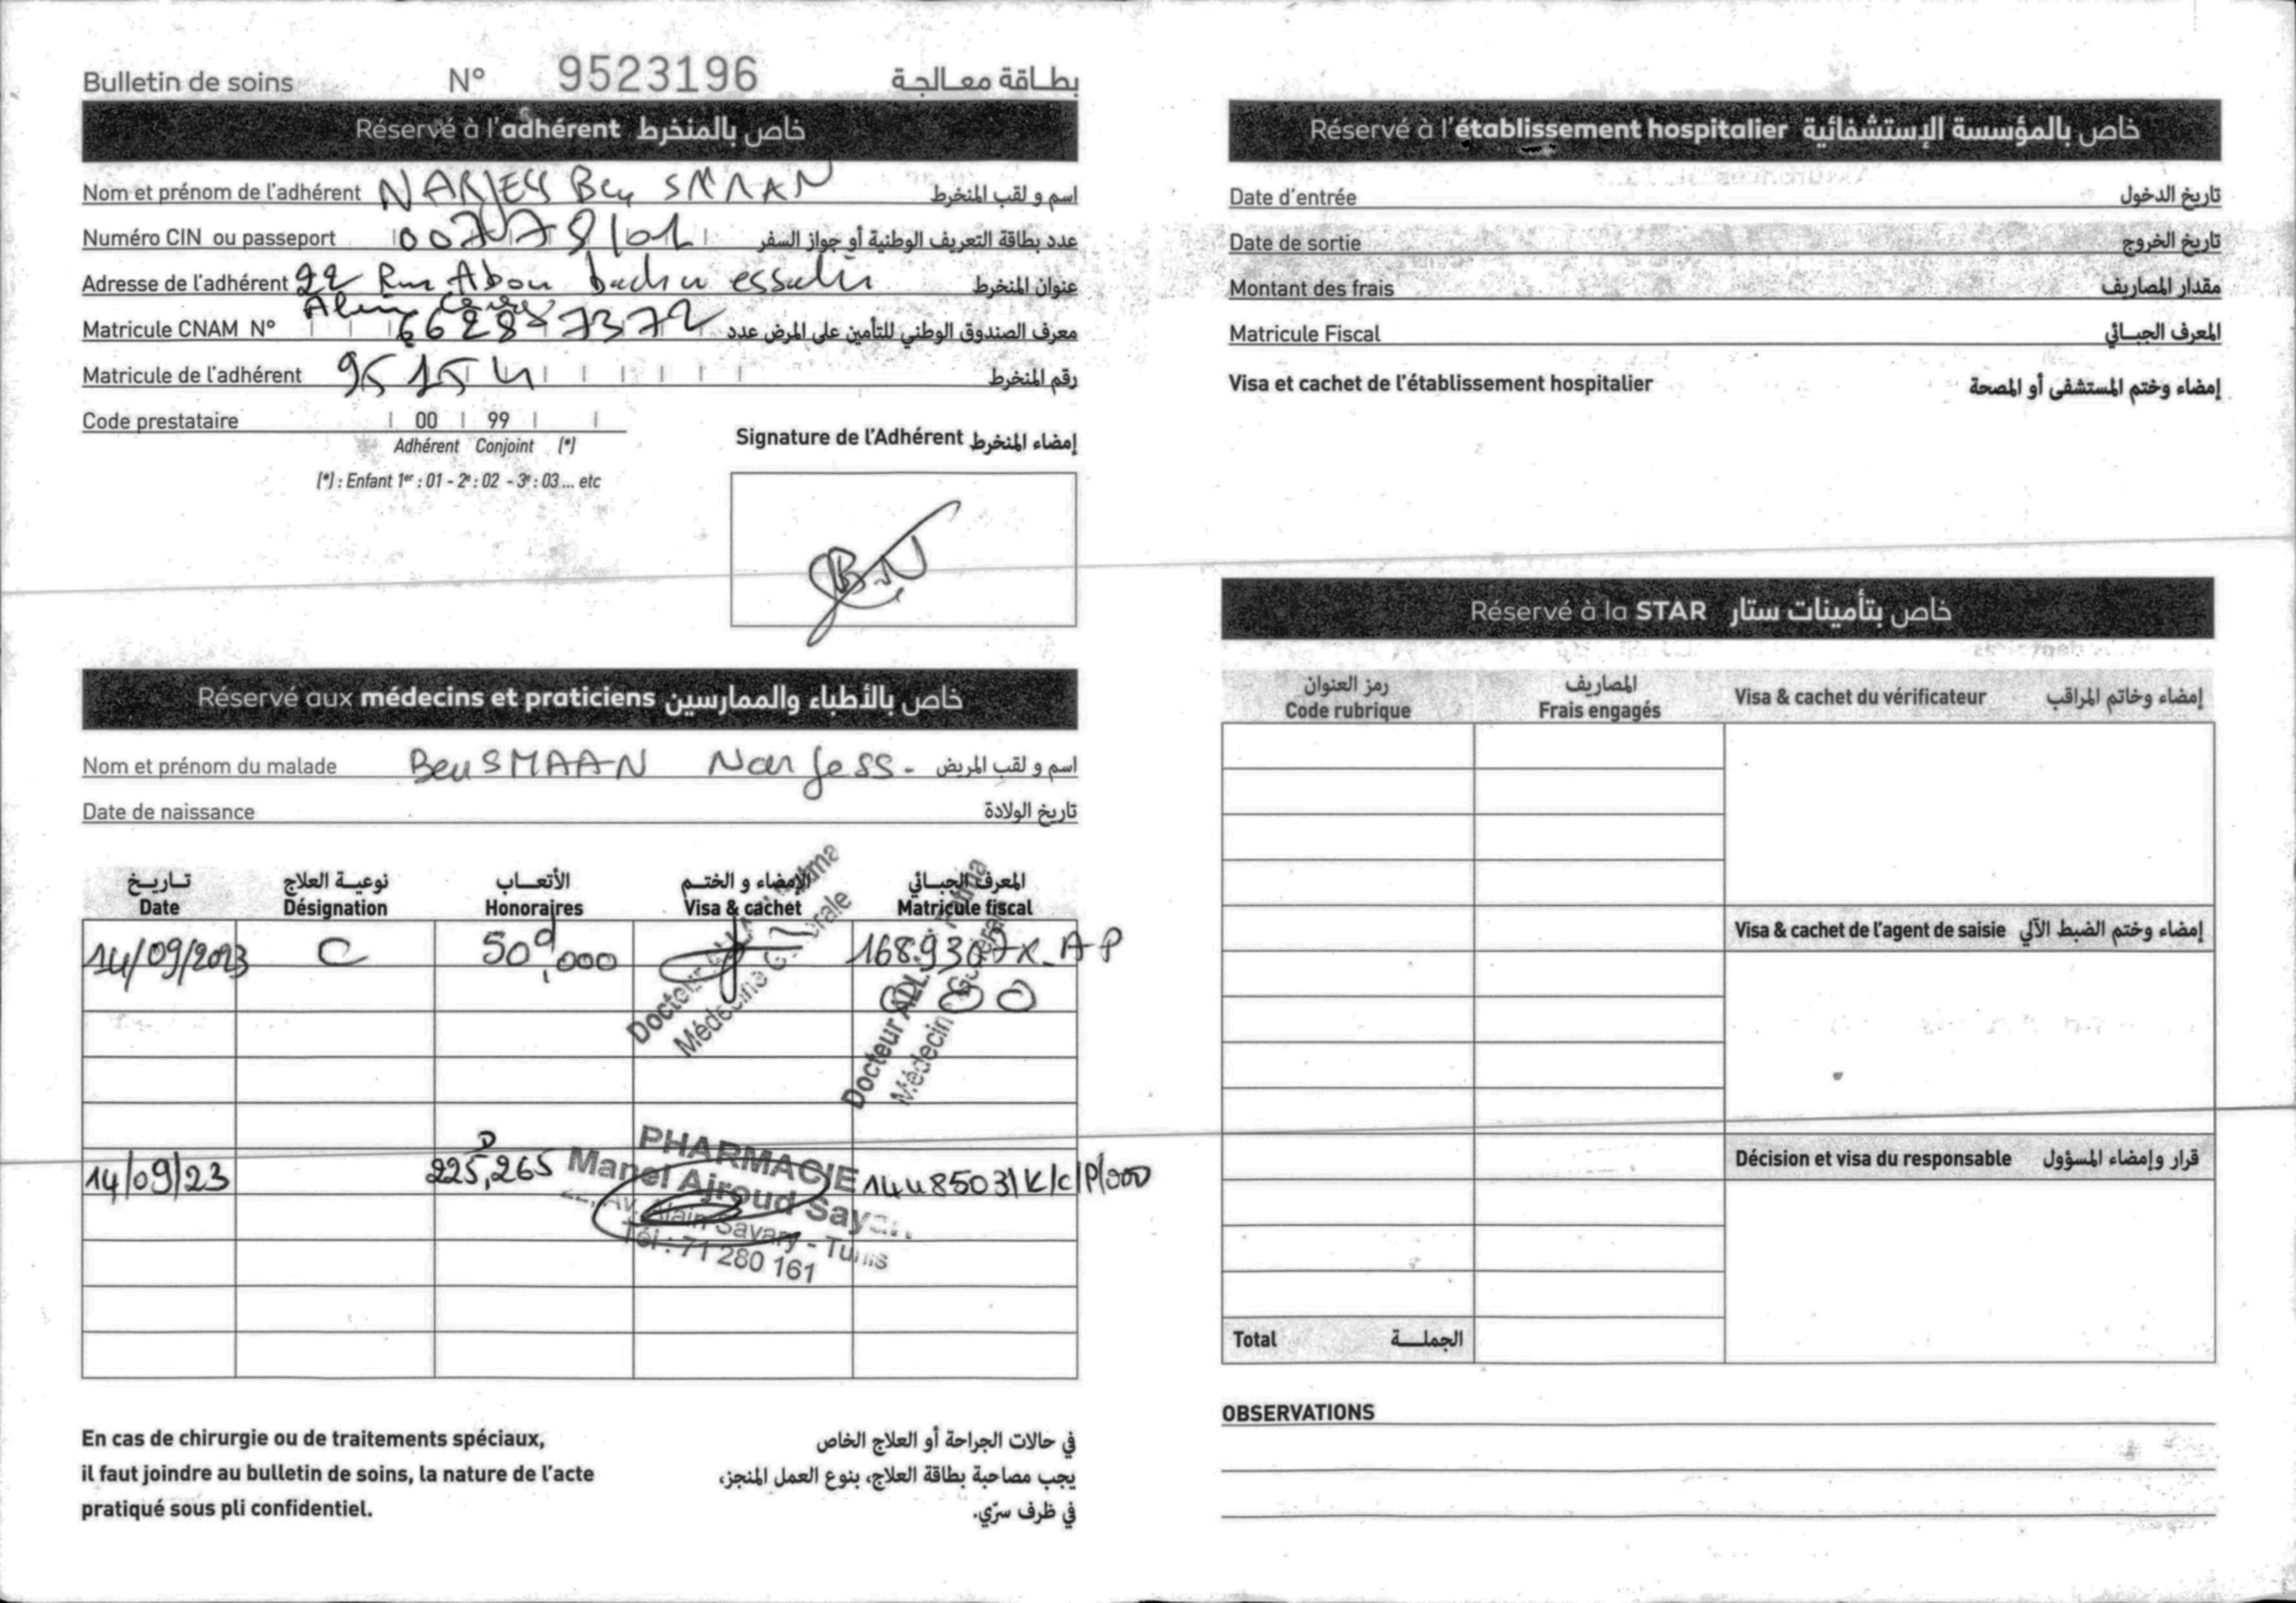 Bulletin de soins N° 9523196 بطاقة معالجة
Réservé à l'adhérent خاص بالمنخرط
Nom et prénom de l'adhérent NARJESS Ben SMAAN اسم و لقب المنخرط
Numéro CIN ou passeport عدد بطاقة التعريف الوطنية أو جواز السفر
Adresse de l'adhérent 22 Rue Abou عنوان المنخرط
Matricule CNAM N° معرف الصندوق الوطني للتأمين على المرض عدد
Matricule de l'adhérent 95154 رقم المنخرط
Code prestataire 00 99
Adhérent Conjoint (*)
(*) : Enfant 1er : 01 - 2e : 02 - 3e : 03 ... etc
Signature de l'Adhérent إمضاء المنخرط
Réservé aux médecins et praticiens خاص بالأطباء والممارسين
Nom et prénom du malade Ben SMAAN Narjess. اسم و لقب المريض
Date de naissance تاريخ الولادة
تاريخ نوعية العلاج الأتعاب الإمضاء و الختم المعرف الجبائي
Date Désignation Honoraires Visa & cachet Matricule fiscal
14/09/2023 C 50d,000
Docteur
Médecine
Docteur
14/09/23 225D,265 1448503/K/C/P/000
PHARMACIE
Manel Ajroud
22, Av. Alain Savary - Tunis
Tél : 71 280 161
En cas de chirurgie ou de traitements spéciaux,
il faut joindre au bulletin de soins, la nature de l'acte
pratiqué sous pli confidentiel.
في حالات الجراحة أو العلاج الخاص
يجب مصاحبة بطاقة العلاج، بنوع العمل المنجز،
في ظرف سرّي.
Réservé à l'établissement hospitalier خاص بالمؤسسة الإستشفائية
Date d'entrée تاريخ الدخول
Date de sortie تاريخ الخروج
Montant des frais مقدار المصاريف
Matricule Fiscal المعرف الجبائي
Visa et cachet de l'établissement hospitalier إمضاء وختم المستشفى أو المصحة
Réservé à la STAR خاص بتأمينات ستار
رمز العنوان المصاريف
Code rubrique Frais engagés Visa & cachet du vérificateur إمضاء وخاتم المراقب
Visa & cachet de l'agent de saisie إمضاء وختم الضبط الآلي
Décision et visa du responsable قرار وإمضاء المسؤول
Total الجملة
OBSERVATIONS